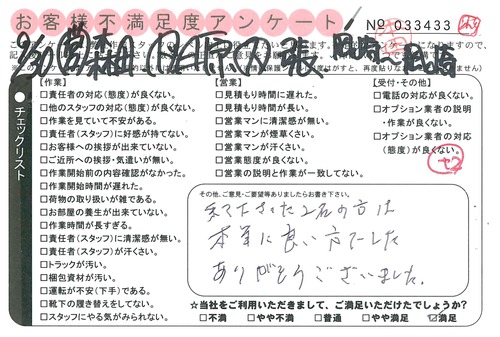 お客様不満足度アンケート
№ 033433
チェックリスト
【作業】
□責任者の対応(態度)が良くない。
□他のスタッフの対応(態度)が良くない。
□作業を見ていて不安がある。
□責任者(スタッフ)に好感が持てない。
□お客様への挨拶が出来ていない。
□ご近所への挨拶・気遣いが無い。
□作業開始前の内容確認がなかった。
□作業開始時間が遅れた。
□荷物の取り扱いが雑である。
□お部屋の養生が出来ていない。
□作業時間が長すぎる。
□責任者(スタッフ)に清潔感が無い。
□責任者(スタッフ)が汗くさい。
□トラックが汚い。
□梱包資材が汚い。
□運転が不安(下手)である。
□靴下の履き替えをしてない。
□スタッフにやる気がみられない。
【営業】
□見積もり時間に遅れた。
□見積もり時間が長い。
□営業マンに清潔感が無い。
□営業マンが煙草くさい。
□営業マンが汗くさい。
□営業態度が良くない。
□営業の説明と作業が一致してない。
【受付・その他】
□電話の対応が良くない。
□オプション業者の説明
・作業が良くない。
□オプション業者の対応
(態度)が良くない。
その他、ご意見・ご要望等ありましたらお書き下さい。
来て下さった2名の方は
本当に良い方でした
ありがとうございました。
☆当社をご利用いただきまして、ご満足いただけたでしょうか?
□不満 □やや不満 □普通 □やや満足 ☑満足